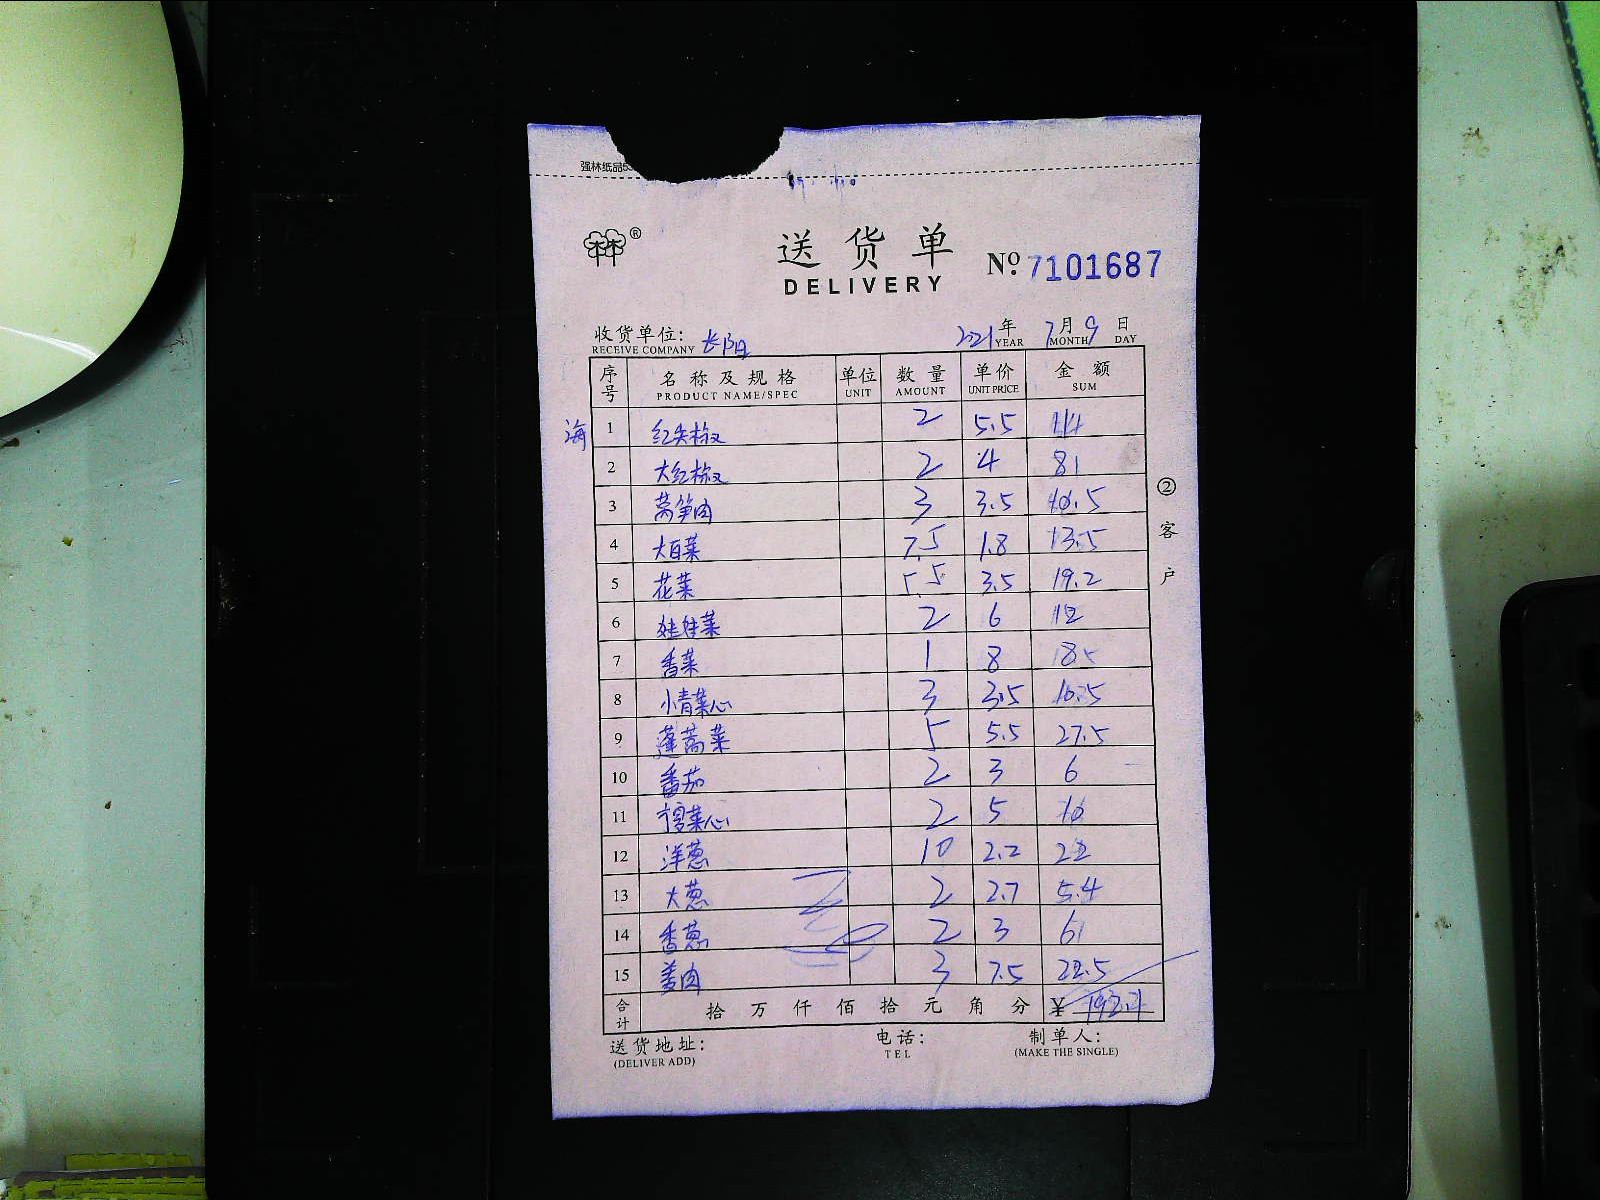 强林纸品
送货单 No. 7101687
DELIVERY
收货单位: 长阳 2021年 7月 9日
RECEIVE COMPANY YEAR MONTH DAY
序号 名称及规格 单位 数量 单价 金额
PRODUCT NAME/SPEC UNIT AMOUNT UNIT PRICE SUM
海 1 红尖椒 2 5.5 11
2 大红椒 2 4 8
3 莴笋肉 3 3.5 10.5
4 大白菜 7.5 1.8 13.5
5 花菜 5.5 3.5 19.2
6 娃娃菜 2 6 12
7 香菜 1 8 8
8 小青菜心 3 3.5 10.5
9 蓬蒿菜 5 5.5 27.5
10 番茄 2 3 6
11 菜心 2 5 10
12 洋葱 10 2.2 22
13 大葱 2 2.7 5.4
14 香葱 2 3 6
15 姜肉 3 7.5 22.5
合计 拾万仟佰拾元角分 ¥ 192.1
送货地址: 电话: 制单人:
(DELIVER ADD) TEL (MAKE THE SINGLE)
②客户